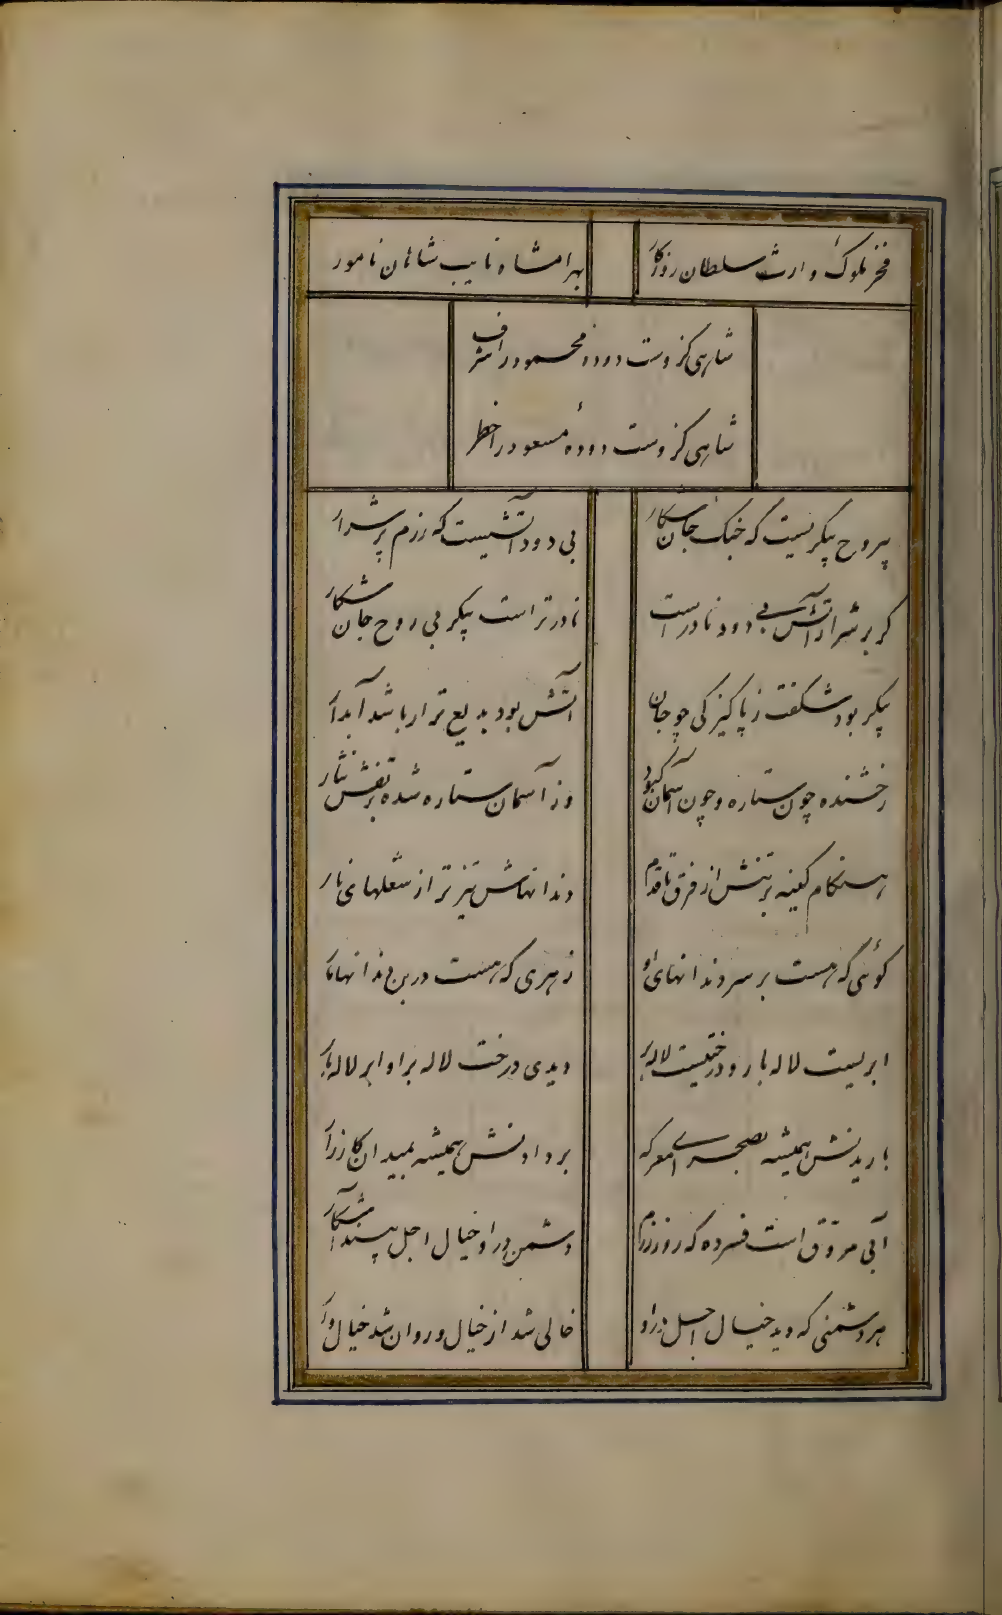 فخر ملوک وارث سلطان روزگار
بهرامشاه نایب شاهان نامور
شاهی کزوست دوده محمود را شرف
شاهی کزوست دودهٔ مسعود را خطر
بی روح پیکریست که جنگ جان سکار
بی دود آتشیست که رزم پر شرار
کر پر شرار آتش بی دود نادر است
نادرتر است پیکر بی روح جان شکار
پیکر بود شکفت ز پاکیزکی چو جان
آتش بود بدیع تر ار باشد آبدار
رخشنده چون ستاره و چون آسمان کبود
وز آسمان ستاره شده بر تنش نثار
هنکام کینه بر تنش از فرق تا قدم
دندانهاش تیزتر از شعلهای نار
کوئی که هست بر سر دندانهای او
زهری که هست در بن دندانهامار
ابریست لاله بار و درختیست لاله بر
دیدی درخت لاله بر او ابر لاله بار
باریدنش همیشه بصحرای معرکه
بر دادنش همیشه بمیدان کارزار
آبی مروق است فسرده که روز رزم
دشمن در او خیال اجل بیند آشکار
هر دشمنی که دید خیال اجل در او
خالی شد از خیال و روان شد خیال وار